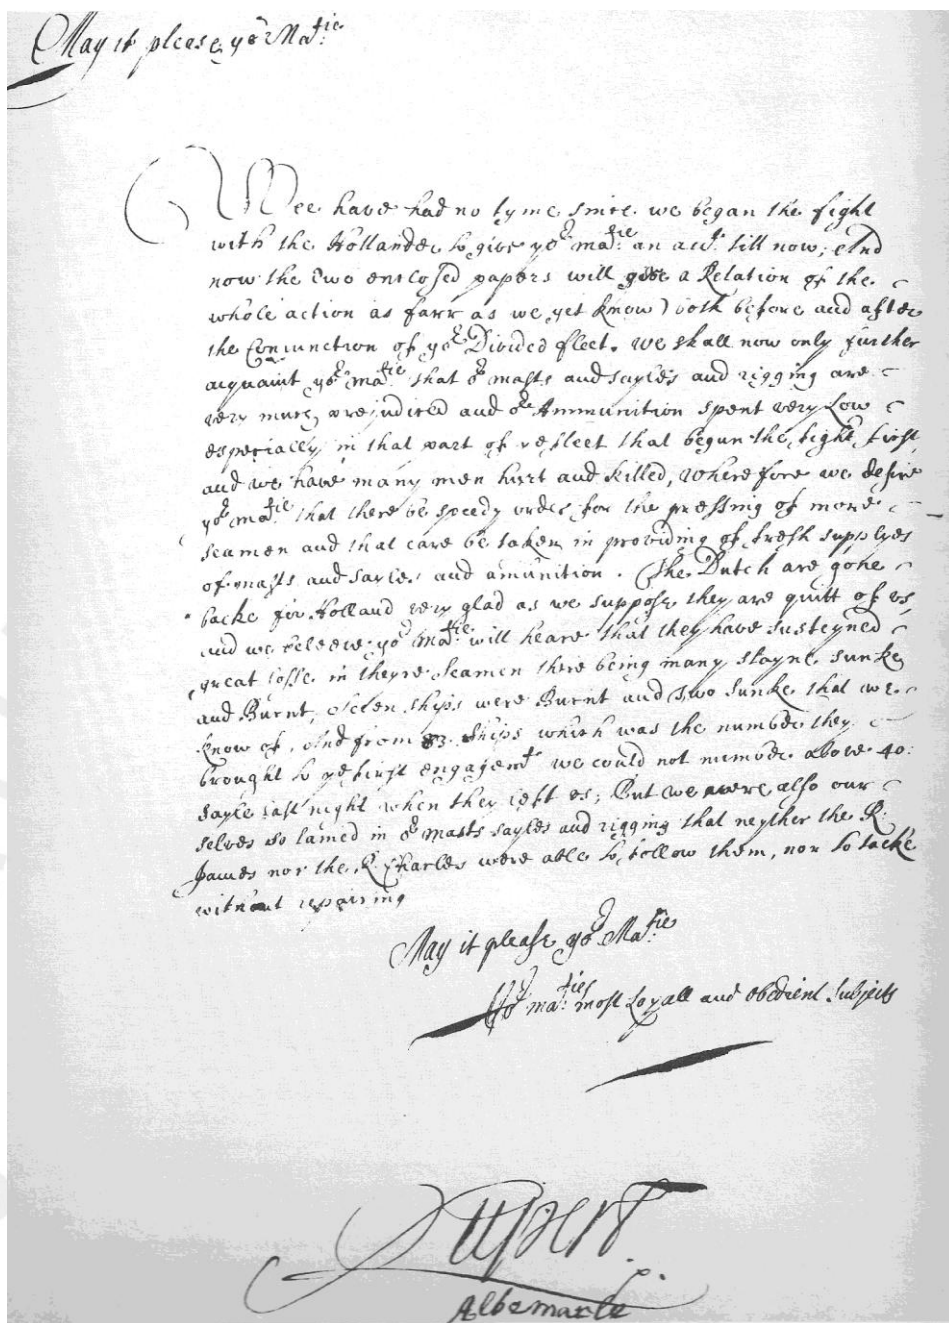 May it please yor Matie:
Wee have had no tyme since we began the fight
with the Hollander to give yor matie: an acct: till now; And
now the two enclosed papers will give a Relation of the
whole action as farr as we yet know) both before and after
the Coniunction of yor Divided fleet. We shall now only further
acquaint yor matie: that or masts and sayles and rigging are
very much preiudiced and or Ammunition spent very Low
especially in that part of ye fleet that begun the fight first,
and we have many men hurt and killed, Wherefore we desire
yor matie: that there be speedy order for the pressing of more
seamen and that care be taken in providing of fresh supplyes
of masts and sayles and amunition. The Dutch are gone
backe for Holland very glad as we suppose they are quitt of vs,
and we beleeve yor matie: will heare that they have susteyned
great losse in theyre Seamen there being many slayne sunke
and Burnt, Seven ships were Burnt and Two sunke that we
know of, And from 83 ships which was the number they
brought to ye first engagemt we could not number above 40:
sayle last night when they left vs; But we were also our
selves so lamed in or masts sayles and rigging that neyther the R:
James nor the R: Charles were able to follow them, nor to tacke
without repairing
May it please yor Matie:
Yor maties: most Loyall and obedient Subjects
Rupert.
Albemarle